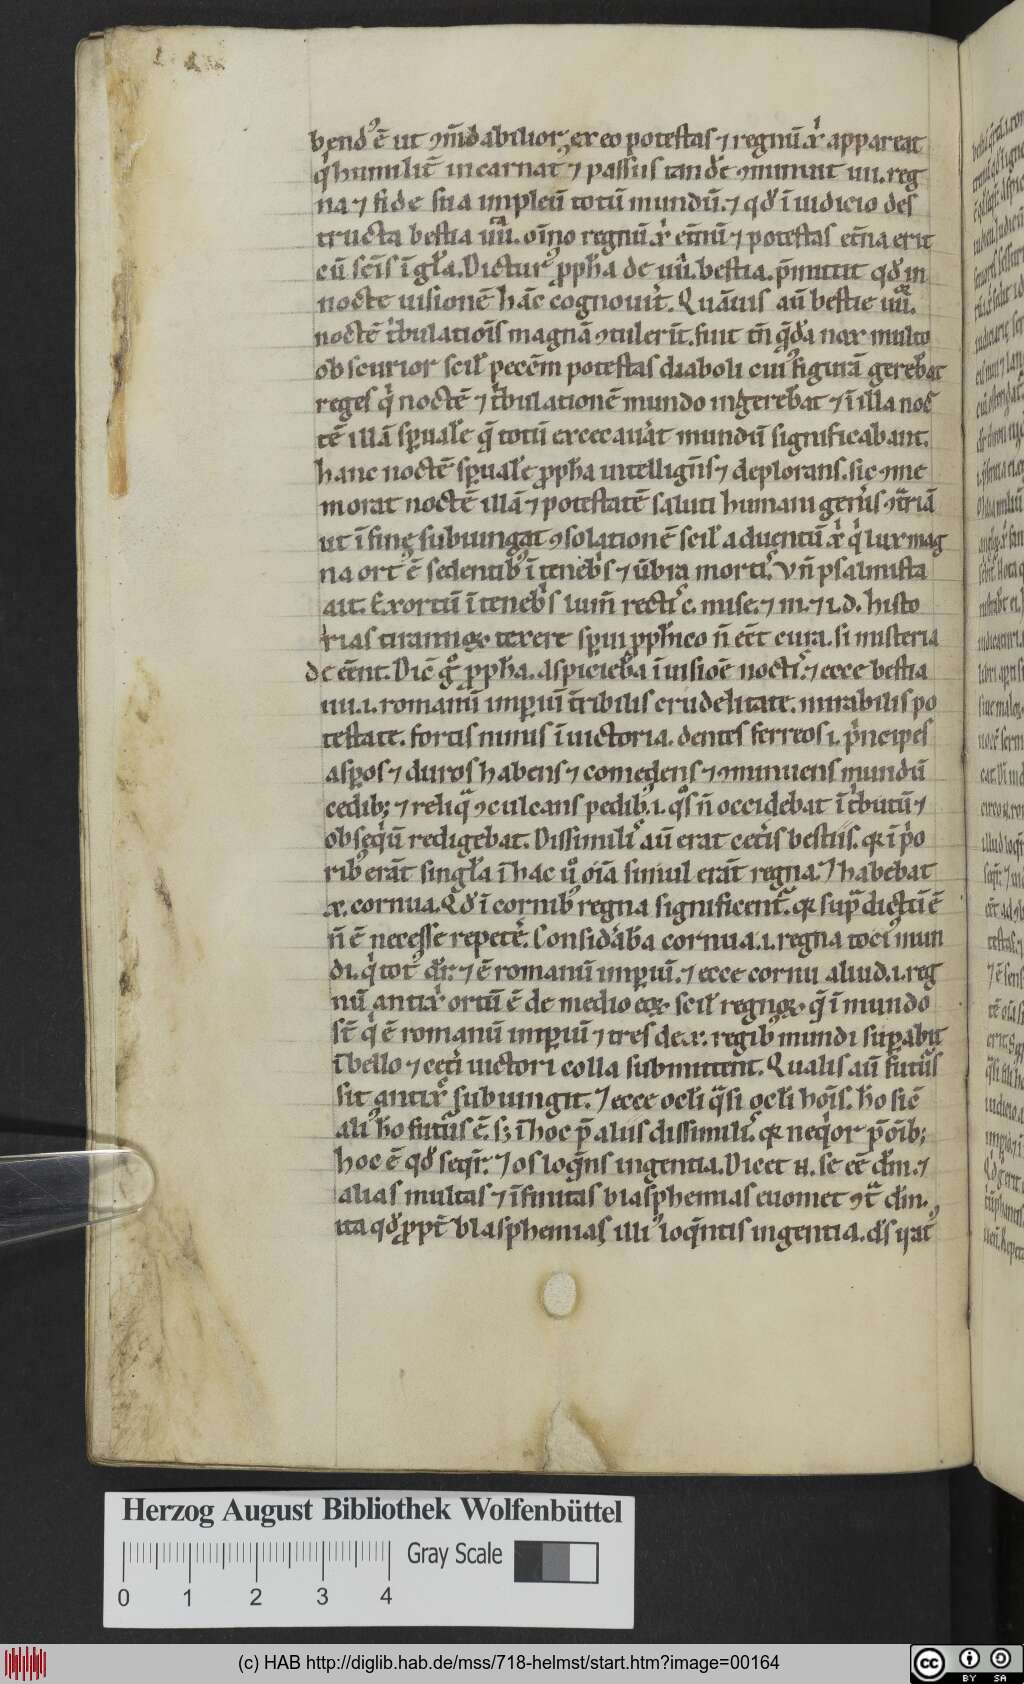 bendꝰ ē ut ꝯm̄dabilior. ex eo potestas ⁊ regnū xͥ appareat
qͥ humilit̄ incarnat ⁊ passus tandē ꝯminuit uii. reg
na ⁊ fide sua impleu totū mundū. ⁊ qd̄ ī iudicio des
tructa bestia oīno regnū xͥ et̄nū ⁊ potestas et̄na erit
cū scīs ī gl̄a. Dicturꝰ ꝓph̄a de bestia. p̄mittit qd̄ in
nocte uisionē hāc cognouit. Quāuis aū bestie
noctē tͥbulatiōis magnā ꝯtulerīt. fuit tn̄ q̄dā nox multo
obscurior scil̄ pecc̄m potestas diaboli cuiꝰ figurā gereb̄at
reges qͥ noctē ⁊ tͥbulationē mundo ingereb̄at ⁊ ī illa noc
tē illā sp̄uale q̄ totū excecauāt mundū significabant.
hanc noctē sp̄uale ꝓph̄a intelligēs ⁊ deplorans. sic ꝯme
morat noctē illā ⁊ potestatē saluti humani gen̄is ꝯtͣriā
ut ī fine subiungat ꝯsolationē scil̄ aduentū xͥ qͥ lux mag
na ortꝰ ē sedentibꝰ ī teneb̄s ⁊ ūbra mortis. Vn̄ psalmista
ait. Exortū ī teneb̄s lum̄ rectis c. mise. ⁊ m. ⁊ i. d. histo
rias tirannoꝝ texere sp̄iui ꝓph̄ico n̄ eēt cura. si misteria
deeēnt. Dic̄ gͦ ꝓph̄a. Aspicieb̄a ī uisiōe noctis. ⁊ ecce bestia
iiii. i. romanū imperiū t̄ribilis crudelitate. mirabilis po
testate. fortis nimis ī uictoria. dentes ferreos i. pͥncipes
asp̄os ⁊ duros habens ⁊ comedens ⁊ ꝯminuens mundū
cedibꝫ ⁊ reliqͣ ꝯculcans pedibꝰ. i. qͦs n̄ occidebat ī tͥbutū ⁊
obseqͥū redigebat. Dissimilis aū erat cet̄is bestiis. qꝛ ī pͥo
ribꝰ erāt singl̄a ī hac uͦ oīa simul erāt regna. ⁊ habebat
x. cornua. Qd̄ ī cornibꝰ regna significent. qꝛ supͣ dictū ē
n̄ ē necesse repet̄e. Considāb̄a cornua. i. regna tociꝰ mun
di. qͥ totꝰ dr̄. ⁊ ē romanū imperiū. ⁊ ecce cornu aliud. i. reg
nū antixͥ ortū ē de medio eoꝝ scil̄ regnoꝝ q̄ ī mundo
st̄ qͥ ē romanū imperiū ⁊ tres de x. regibꝰ mundi superabit
ī bello ⁊ cet̄i uictori colla submittent. Qualis aū futurꝰ
sit antixͥ subiungit. ⁊ ecce ocl̄i qͣsi ocl̄i hoīs. h̄o sic̄
aliꝰ h̄o futurꝰ ē. sꝫ ī hoc p̄ aliis dissimilis. qꝛ neqͥor p̄ oībꝫ
hoc ē qd̄ seqͥr. ⁊ os loqͣns ingentia. Dicet n. se eē dm̄. ⁊
alias multas ⁊ īfinitas blasphemias euomet ꝯtͣ dm̄.
ita qd̄ ꝓpt̄ blasphemias illiꝰ loqͣntis ingentia. ds̄ iratꝰ
Herzog August Bibliothek Wolfenbüttel
Gray Scale
0 1 2 3 4
(c) HAB http://diglib.hab.de/mss/718-helmst/start.htm?image=00164
cc BY SA